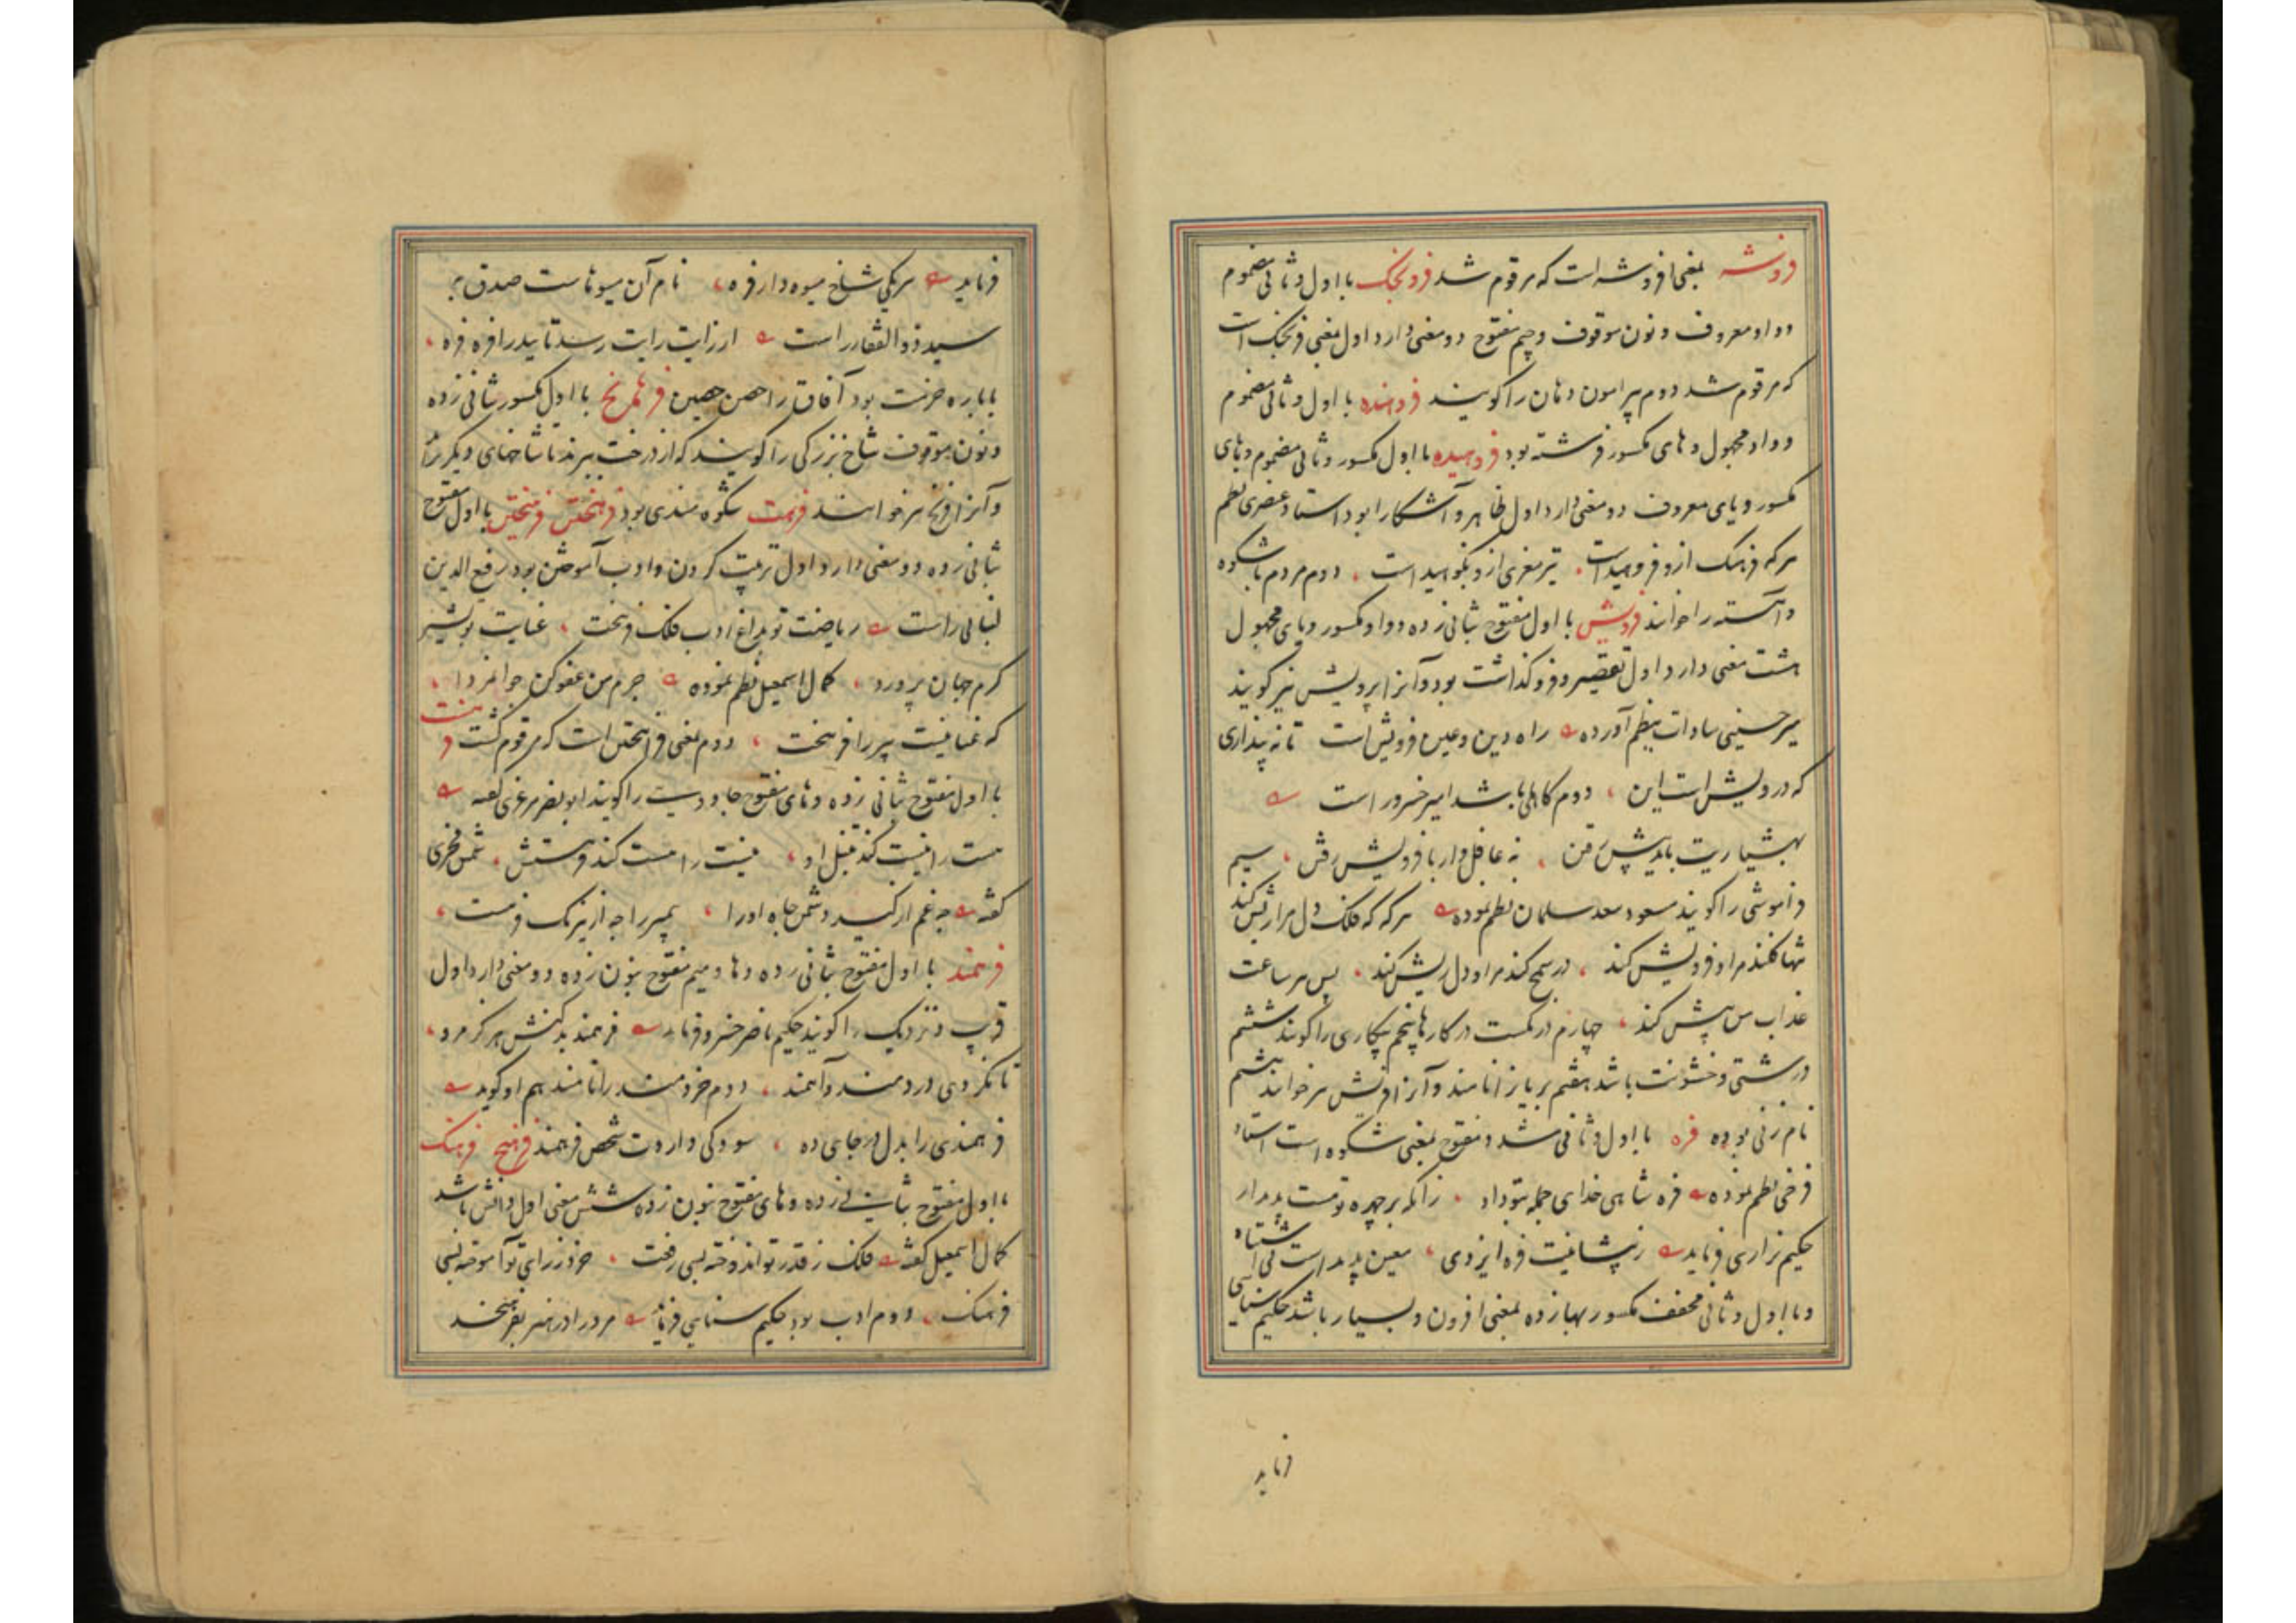 فروشه بمعنی افروشه است که مرقوم شد فرونجک با اول و ثانی مضموم
و واو معروف و نون موقوف و جیم مفتوح دو معنی دارد اول بمعنی فرنجک است
که مرقوم شد دوم پیرامون دهان را گویند فروهنده با اول و ثانی مضموم
و واو مجهول و های مکسور فرشته بود فروهیده با اول مکسور و ثانی مضموم و های
مکسور و یای معروف دو معنی دارد اول ظاهر و آشکارا بود استاد عنصری نظم
هر که فرهنگ ازو فروهیدست تیز مغزی ازو نکوهیدست دوم مردم باشکوه
و آهسته را خوانند فرویش با اول مفتوح بثانی زده و واو مکسور و یای مجهول
هشت معنی دارد اول تقصیر و فروکذاشت بود و آنرا پرویش نیز گویند
میر حسینی سادات بنظم آورده راه دین و عین فرویش است تا نه پنداری
که درویش است این دوم کاهلی باشد امیر خسرو راست
بهشیاریت باید پیش رفتن نه غافل وار با فرویش رفتن سیم
فراموشی را گویند مسعود سعد سلمان نظم نموده هر که که فلک دل مرا ریش کند
تنها کندم مرا و فرویش کند در سمج کند مرا و دل ریش کند پس هر ساعت
عذاب من بیش کند چهارم درنکست در کارها پنجم بیکاری را گویند ششم
درشتی و خشونت باشد هفتم بریان را نامند و آنرا فریش نیز خوانند هشتم
نام زنی بوده فره با اول و ثانی مشدد مفتوح بمعنی شکوه است استاد
فرخی نظم نموده فره شاهی خدای جمله بتو داد زانکه بر چهره تو هست پدیدار
حکیم نزاری فرماید ز پیشانیت فره ایزدی معین پدیدست بی اشتباه
و با اول و ثانی مخفف مکسور بها زده بمعنی افزون و بسیار باشد حکیم سنایی
فرماید
فرماید هر یکی شاخ میوه دار فره نام آن میوهاست صدق بره
سید ذوالفقار راست ار زایت رایت رسد تایید را فره فره
با باره حزمت بود آفاق را حصن حصین فرهانج با اول مکسور بثانی زده
و نون موقوف شاخ بزرگی را گویند که از درخت ببرند تا شاخهای دیگر
و آنرا فرنج نیز خوانند فرهت شکوه مندی بود فرهختن فرهنجتن با اول مفتوح
بثانی زده دو معنی دارد اول تربیت کردن و ادب آموختن بود رفیع الدین
لنبانی راست ریاضت تو بداغ ادب فلک فرهخت عنایت تو بشیر
کرم جهان پرورد کمال اسمعیل نظم نموده جرم من عفو کن جوانمردا
که عنانیت پیر را فرهخت دوم بمعنی فراهختن است که مرقوم گشت فرهست
با اول مفتوح بثانی زده و های مفتوح جادویست را گویند ابونصر مرغزی گفته
هست را نیست کند تنبل او نیست را هست کند فرهستش شمس فخری
گفته چه غم از کید دشمن جاه او را پیمبر را چه از نیرنگ فرهست
فرهمند با اول مفتوح بثانی زده و ها و میم مفتوح بنون زده دو معنی دارد اول
قریب و نزدیک را گویند حکیم ناصر خسرو فرماید فرهمند بدکنش هرگز مرد
تا نکردی دردمند و آهمند دوم خردمند را نامند هم او گوید
فرهمندی را بدل در جای ده سود کی داردت شخص فرهمند فرهنج فرهنگ
با اول مفتوح بثانی زده و های مفتوح بنون زده شش معنی اول دانش باشد
کمال اسمعیل گفته فلک ز قدر تو اندوخته بسی رفعت خرد ز رای تو آموخته بسی
فرهنگ دوم ادب بود حکیم سنایی فرماید مرد را در هنر بفرهنجند